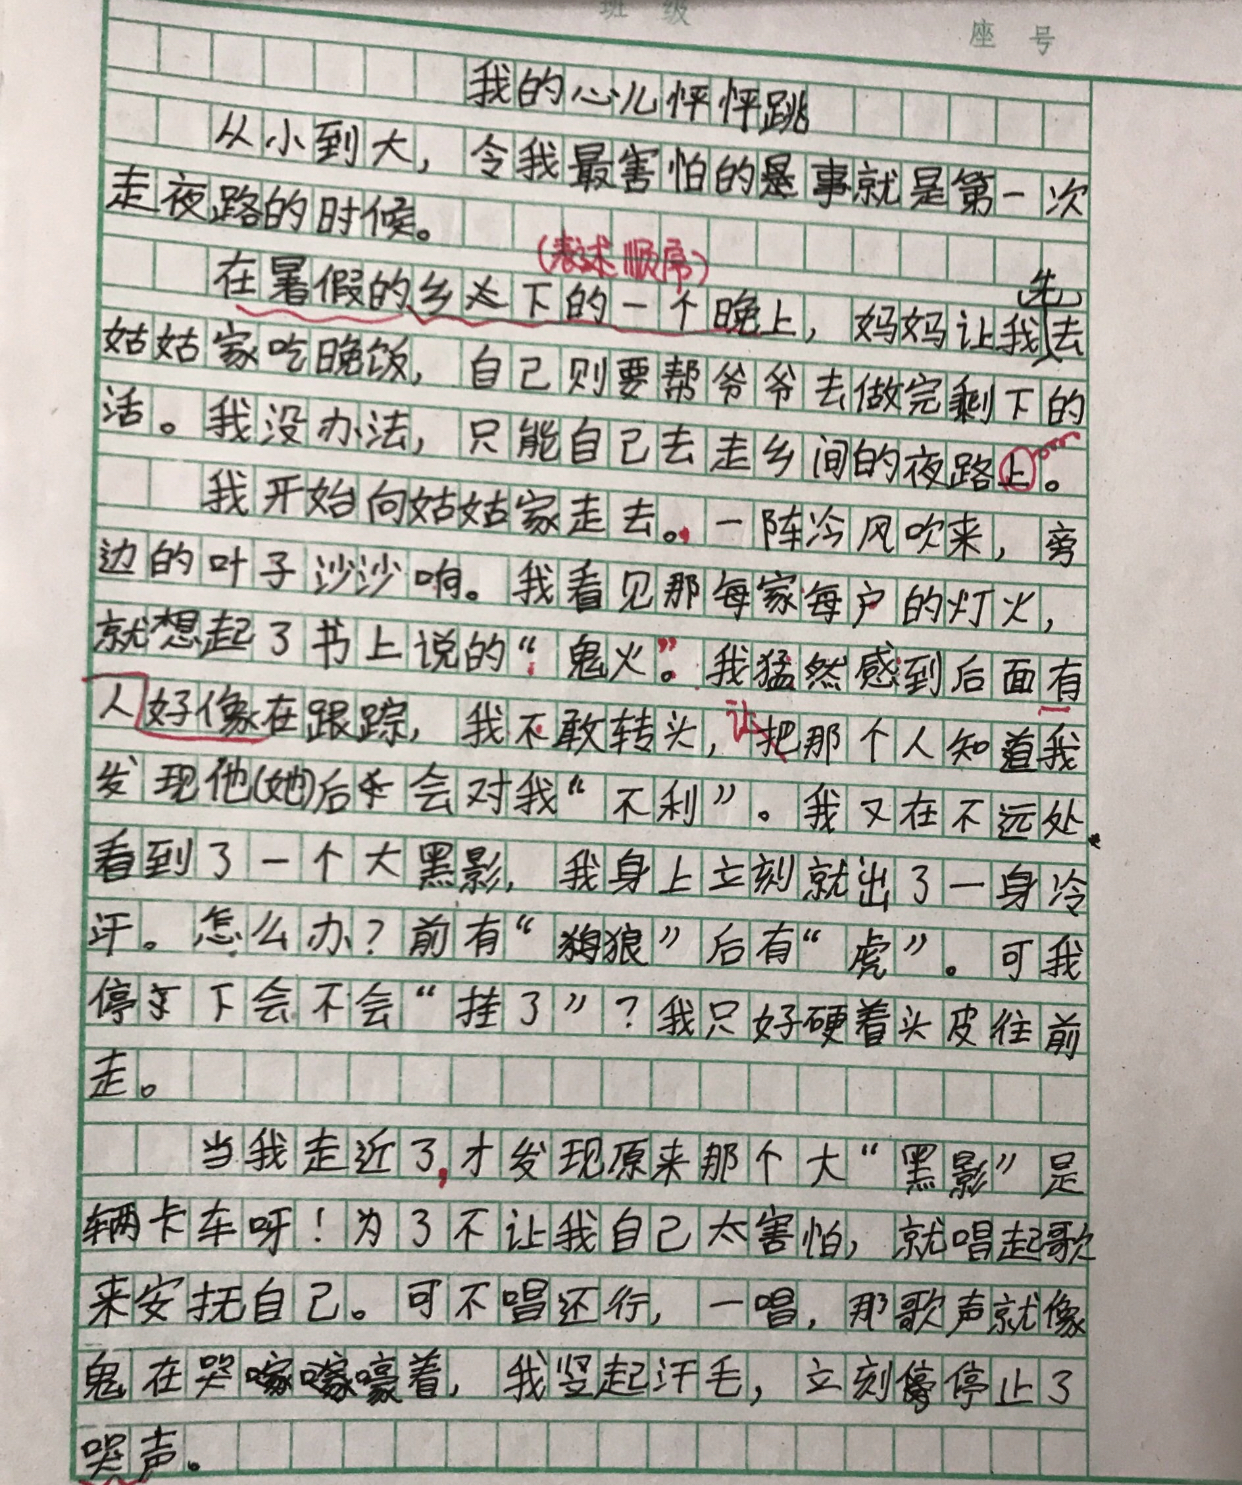 班级
座号
我的心儿怦怦跳
从小到大，令我最害怕的事就是第一次
走夜路的时候。
(表述顺序)
在暑假的乡下的一个晚上，妈妈让我先去
姑姑家吃晚饭，自己则要帮爷爷去做完剩下的
活。我没办法，只能自己去走乡间的夜路上。
我开始向姑姑家走去。，一阵冷风吹来，旁
边的叶子沙沙响。我看见那每家每户的灯火，
就想起了书上说的“鬼火”。我猛然感到后面有
人好像在跟踪，我不敢转头，让把那个人知道我
发现他(她)后会对我“不利”。我又在不远处
看到了一个大黑影，我身上立刻就出了一身冷
汗。怎么办？前有“狼”后有“虎”。可我
停下会不会“挂了”？我只好硬着头皮往前
走。
当我走近了，才发现原来那个大“黑影”是
辆卡车呀！为了不让我自己太害怕，就唱起歌
来安抚自己。可不唱还行，一唱，那歌声就像
鬼在哭嚎着，我竖起汗毛，立刻停止了
哭声。